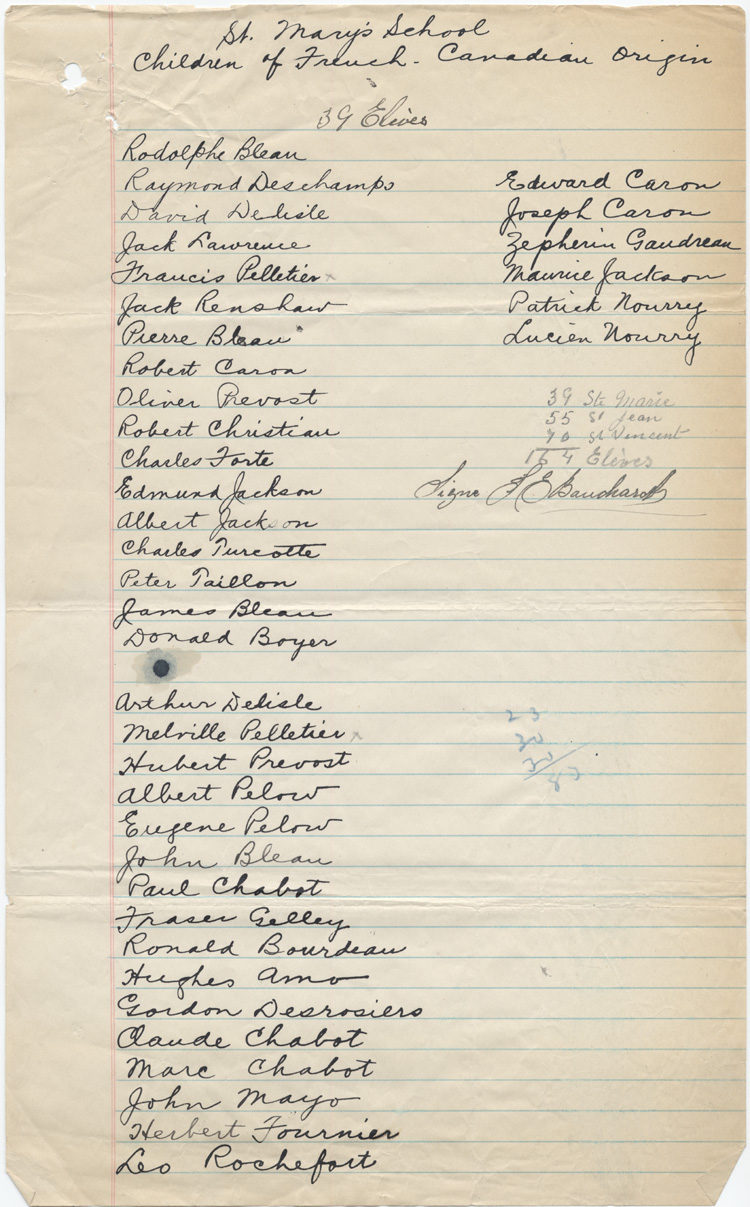 St. Mary's School
Children of French-Canadian Origin
39 Elèves
Rodolphe Bleau
Raymond Deschamps
David Delisle
Jack Lawrence
Francis Pelletier x
Jack Renshaw
Pierre Bleau
Robert Caron
Oliver Prevost
Robert Christian
Charles Forte
Edmund Jackson
Albert Jackson
Charles Turcotte
Peter Taillon
James Bleau
Donald Boyer
Arthur Delisle
Melville Pelletier x
Hubert Prevost
Albert Pelow
Eugene Pelow
John Bleau
Paul Chabot
Fraser Gelley
Ronald Bourdeau
Hughes Amo
Gordon Desrosiers
Claude Chabot
Marc Chabot
John Mayo
Herbert Fournier
Leo Rochefort
Edward Caron
Joseph Caron
Zepherin Gaudreau
Maurice Jackson
Patrick Nourry
Lucien Nourry
39 Ste Marie
55 St Jean
70 St Vincent
164 Elèves
Signe
23
30
30
83